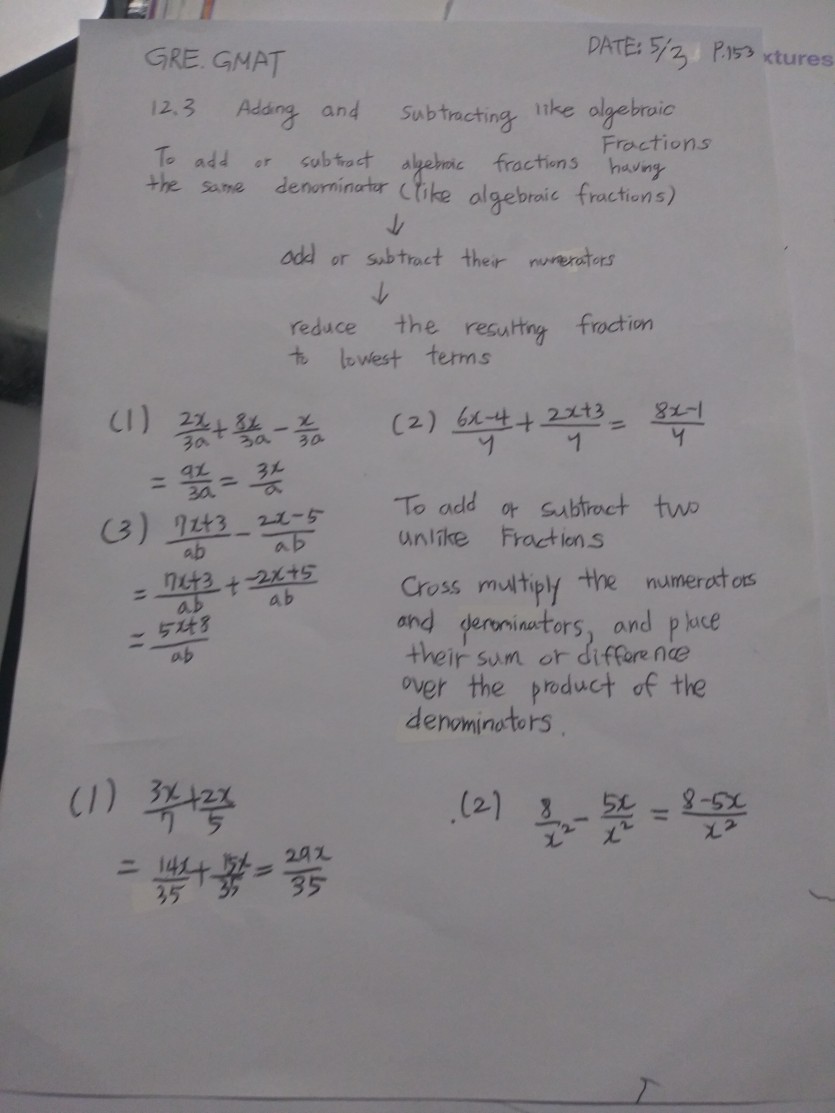 GRE. GMAT
DATE: 5/3 P.153
xtures
12.3 Adding and subtracting like algebraic
Fractions
To add or subtract algebraic fractions having
the same denominator (like algebraic fractions)
↓
add or subtract their numerators
↓
reduce the resulting fraction
to lowest terms
(1) 2x/3a + 8x/3a - x/3a
= 9x/3a = 3x/a
(2) 6x-4/y + 2x+3/y = 8x-1/y
(3) 7x+3/ab - 2x-5/ab
= 7x+3/ab + -2x+5/ab
= 5x+8/ab
To add or subtract two
unlike Fractions
Cross multiply the numerators
and denominators, and place
their sum or difference
over the product of the
denominators.
(1) 3x/7 + 2x/5
= 14x/35 + 15x/35 = 29x/35
(2) 8/x² - 5x/x² = 8-5x/x²